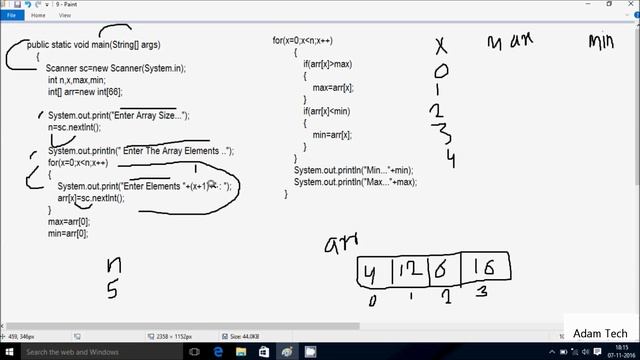 9 - Paint
File
Home
View
public static void main(String[] args)
{
Scanner sc=new Scanner(System.in);
int n,x,max,min;
int[] arr=new int[66];
System.out.print("Enter Array Size...");
n=sc.nextInt();
System.out.println(" Enter The Array Elements ..");
for(x=0;x<n;x++)
{
System.out.print("Enter Elements "+(x+1)+ : ");
arr[x]=sc.nextInt();
}
max=arr[0];
min=arr[0];
n
5
for(x=0;x<n;x++)
{
if(arr[x]>max)
{
max=arr[x];
}
if(arr[x]<min)
{
min=arr[x];
}
}
System.out.println("Min..."+min);
System.out.println("Max..."+max);
}
1
X max min
0
1
2
3
4
arr
4 12 6 16
0 1 2 3
Adam Tech
459, 346px
2358 × 1152px
Size: 44.0KB
100%
Search the web and Windows
18:15
07-11-2016